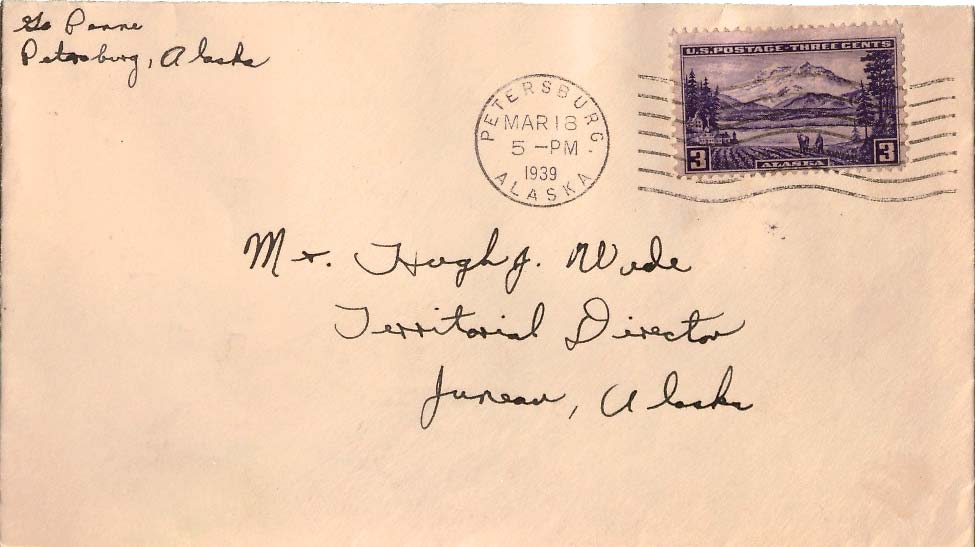 Petersburg, Alaska
PETERSBURG.
MAR 18
5 -PM
1939
ALASKA
U.S. POSTAGE - THREE CENTS
3 ALASKA 3
Mr. Hugh J. Wade
Territorial Director
Juneau, Alaska